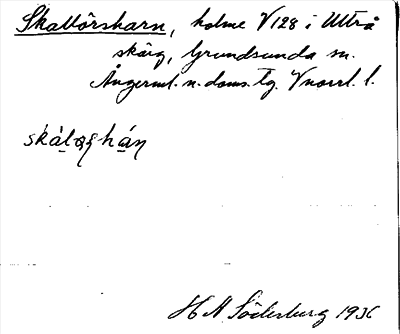 Skallörsharn, holme V 128 i Ulvrå
skärg, Grundsunda sn.
Ångerml. n. doms. tg. Vnorrl. l.
skàlǫṣhán
H A Söderburg 1936